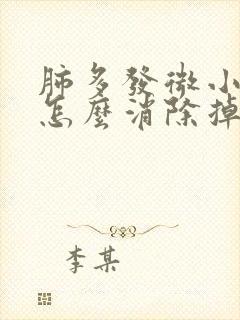 肺多發微小
怎麼消除掉
李某